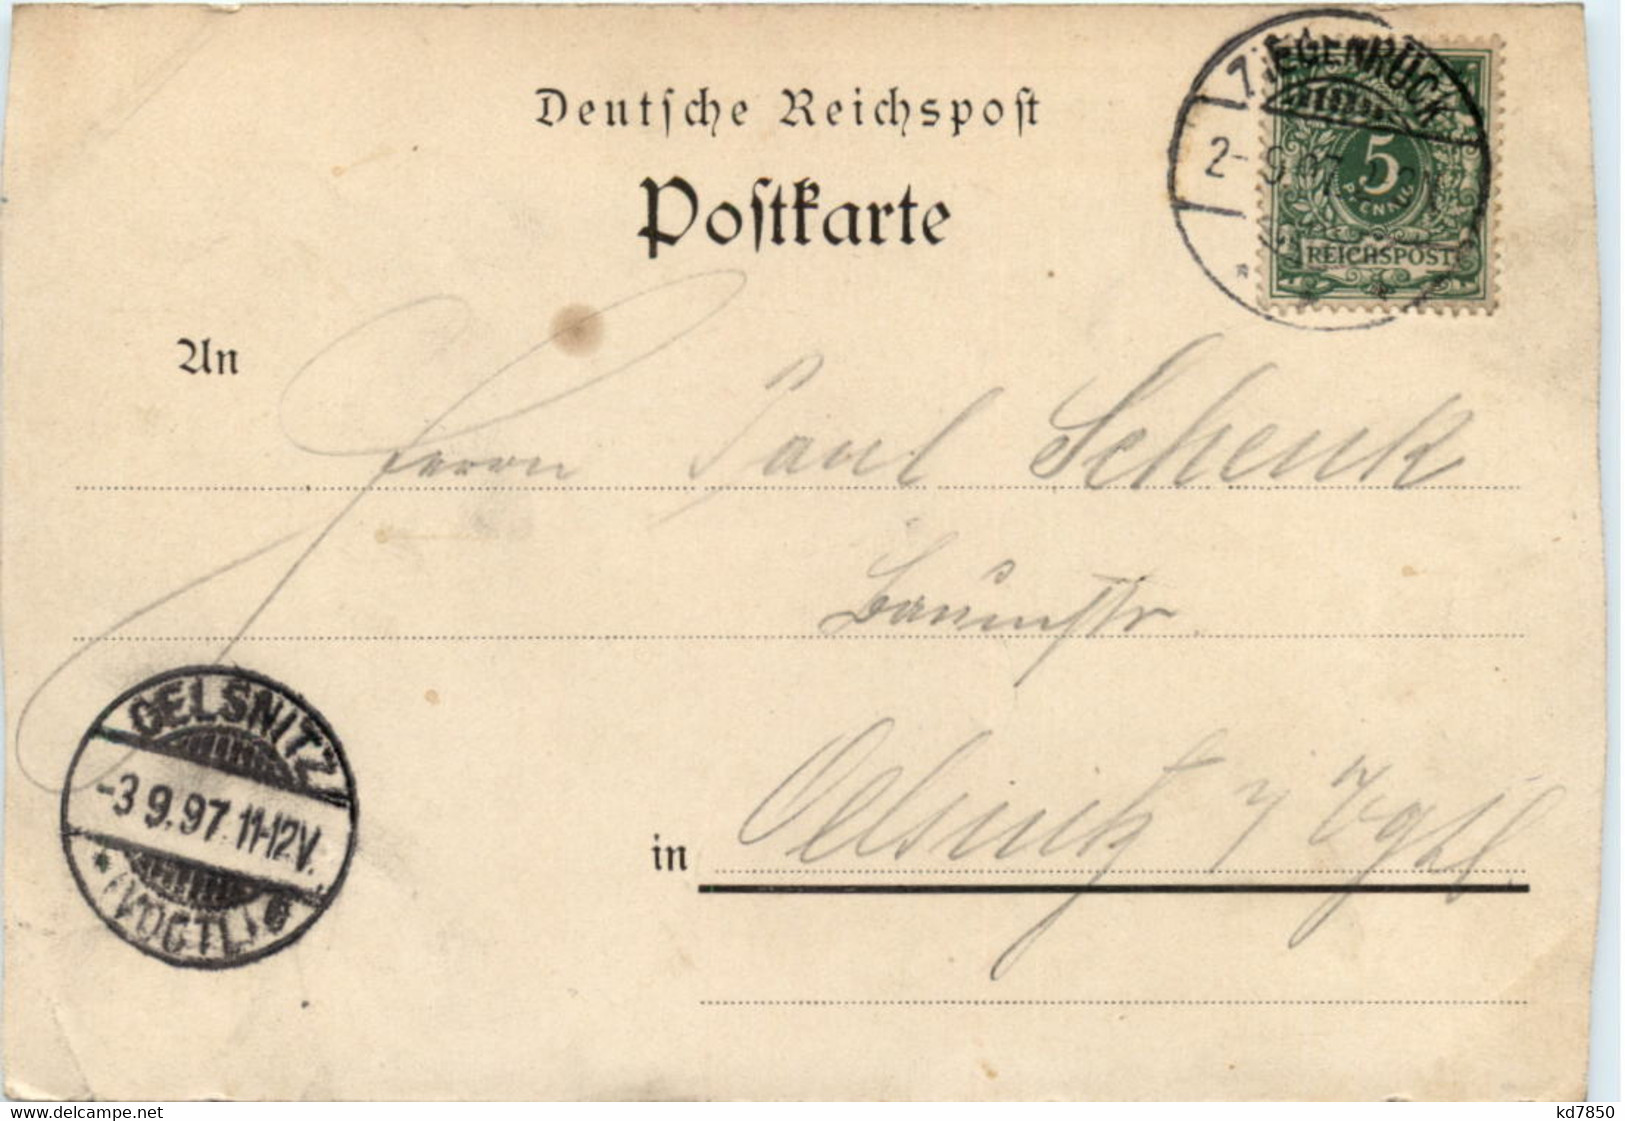 Deutsche Reichspost
ZIEGENRÜCK
2- 9 97
5
PFENNIG
REICHSPOST
Postkarte
An
Herrn Paul Schenk
Oelsnitz i/ Vgtl.
in
OELSNITZ
-3 9.97. 11-12V.
* (VOGTL)
www.delcampe.net
kd7850